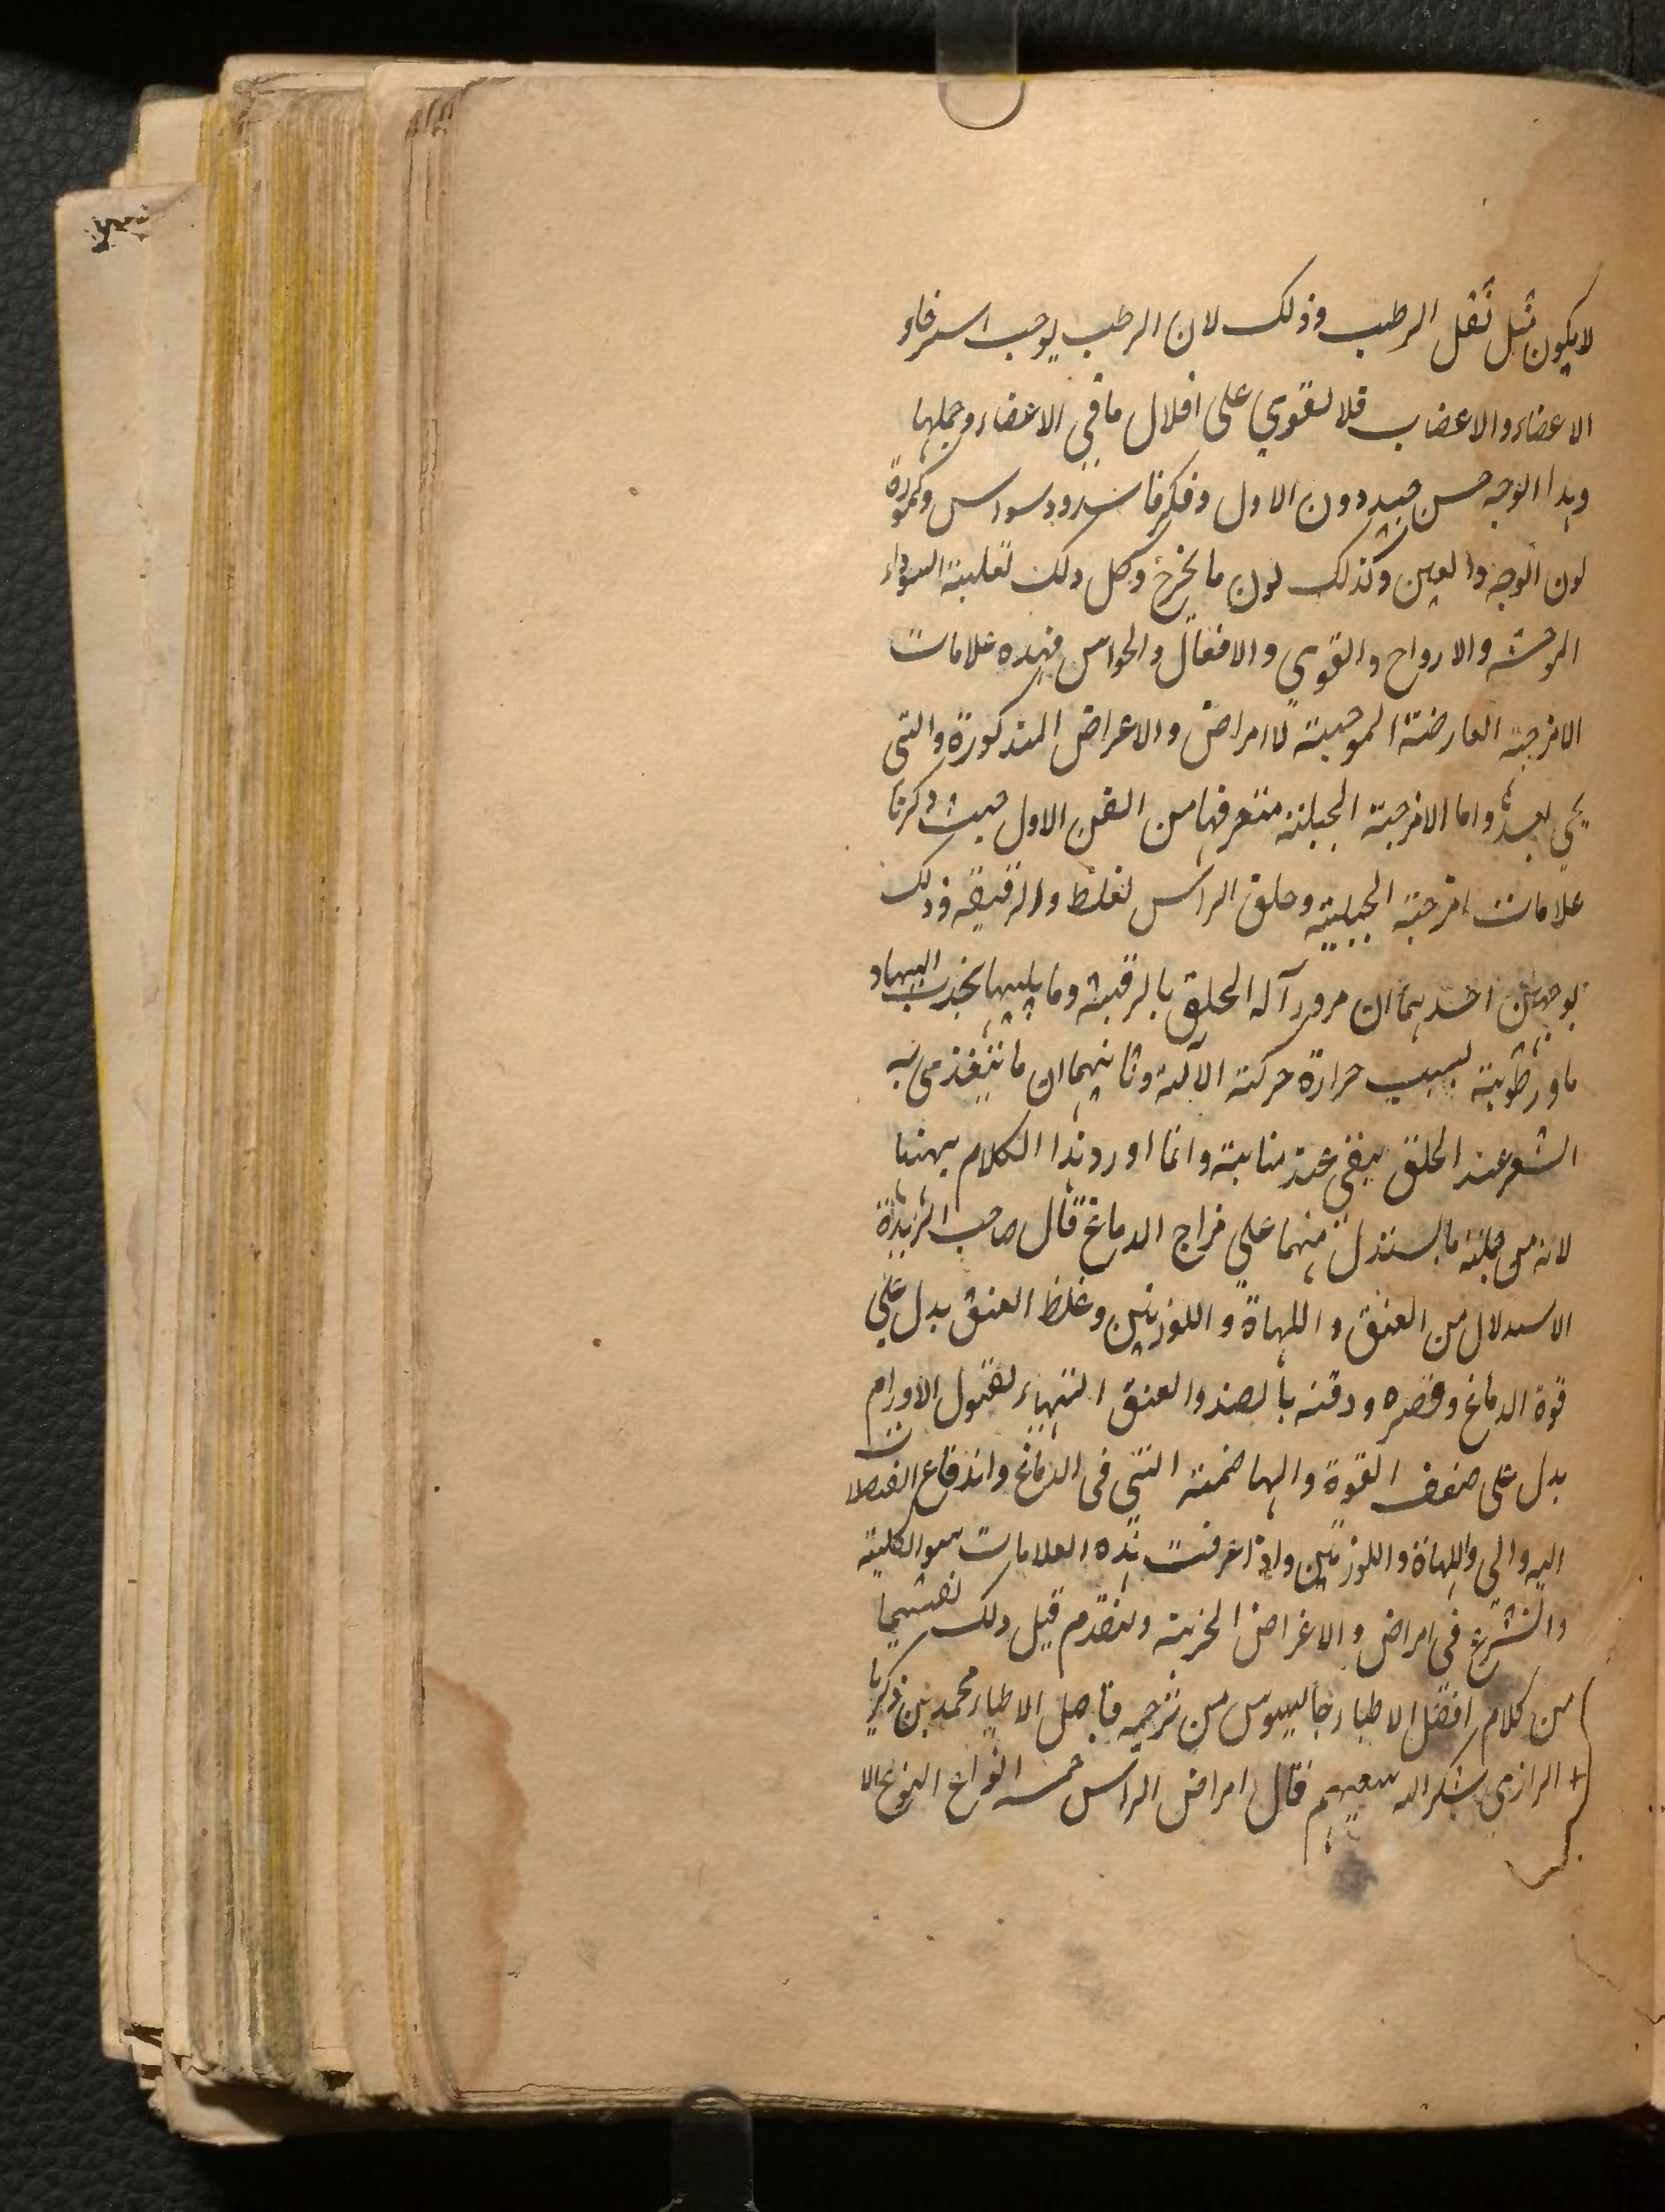 لا يكون مثل ثقل الرطب وذلك لان الرطب يوجب استرخاء
الاعضاء والاعضاب فلا لقوي على اقلال ما في الاعضاء وحملها
وهذا الوجه حسن جيد دون الاول وفكر فاسد ووسواس وكمودة
لون الوجه والعين وكذلك لون ما يخرج وكل ذلك لغلبة السوداء
الموحشة والارواح والقوي والافعال والحواس فهذه علامات
الامزجة العارضة الموجبة لاامراض والاعراض المذكورة والتي
يجي بعد واما الامزجة الجبلية فتعرفها من الفن الاول حيث ذكرنا
علامات امزجة الجبلية وحلق الراس لغلظ والرقيقة وذلك
بوجهين احدهما ان مرور آلة الحلق بالرقبة وما يليها بجذب اليها
ماورطوبة لسبب حرارة حركة الآلة وثانيهما ان ما يتغذى به
الشعر عند الحلق يبقى عند منابته وانما اورد هذا الكلام ههنا
لانه من جملة ما يستدل منهما على مزاج الدماغ قال صاحب الزبدة
الاستدلال من العنق واللهاة واللوزتين وغلظ العنق يدل على
قوة الدماغ وقصره ودقته بالضد والعنق المتهياء لقبول الاورام
يدل على ضعف القوة والهاضمة التي في الدماغ واندفاع الفضلات
اليه والى واللهاة واللوزتين واذا عرفت هذه العلامات هو الكلية
والنشرع في امراض والاعراض الجزية ولنقدم قبل ذلك تقسيما
من كلام افضل الاطباء جالينوس من ترجمه فاضل الاطباء محمد بن زكريا
الرازي شكر الله سعيهم قال امراض الراس خمسة انواع النوع الا